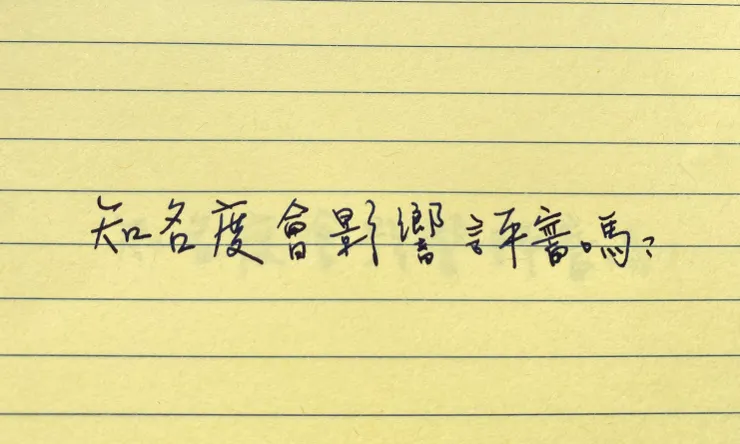 知名度會影響評審嗎?